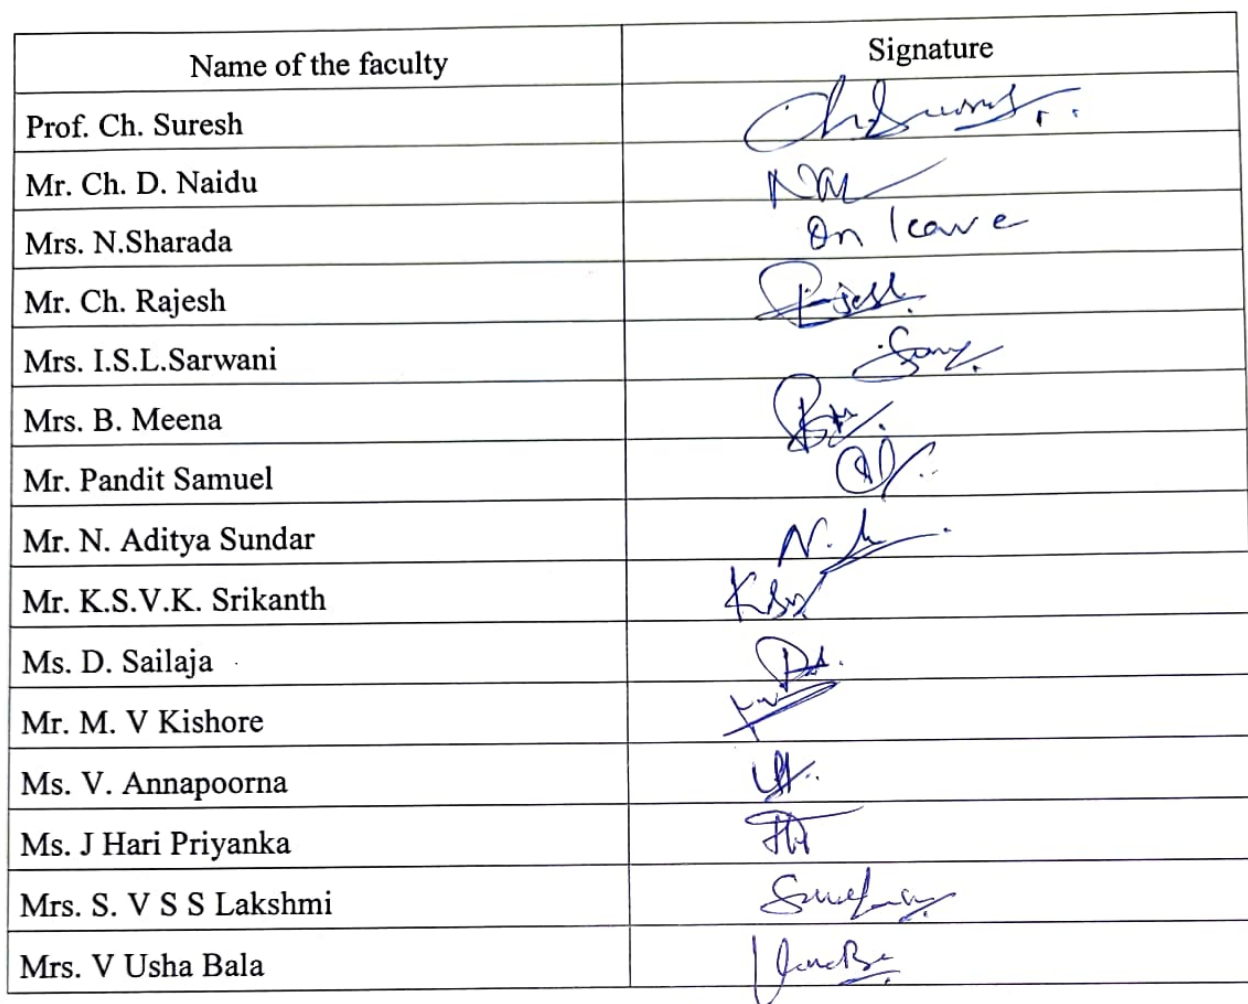 Name of the faculty Signature
Prof. Ch. Suresh
Mr. Ch. D. Naidu
Mrs. N.Sharada On leave
Mr. Ch. Rajesh
Mrs. I.S.L.Sarwani
Mrs. B. Meena
Mr. Pandit Samuel
Mr. N. Aditya Sundar
Mr. K.S.V.K. Srikanth
Ms. D. Sailaja
Mr. M. V Kishore
Ms. V. Annapoorna
Ms. J Hari Priyanka
Mrs. S. V S S Lakshmi
Mrs. V Usha Bala